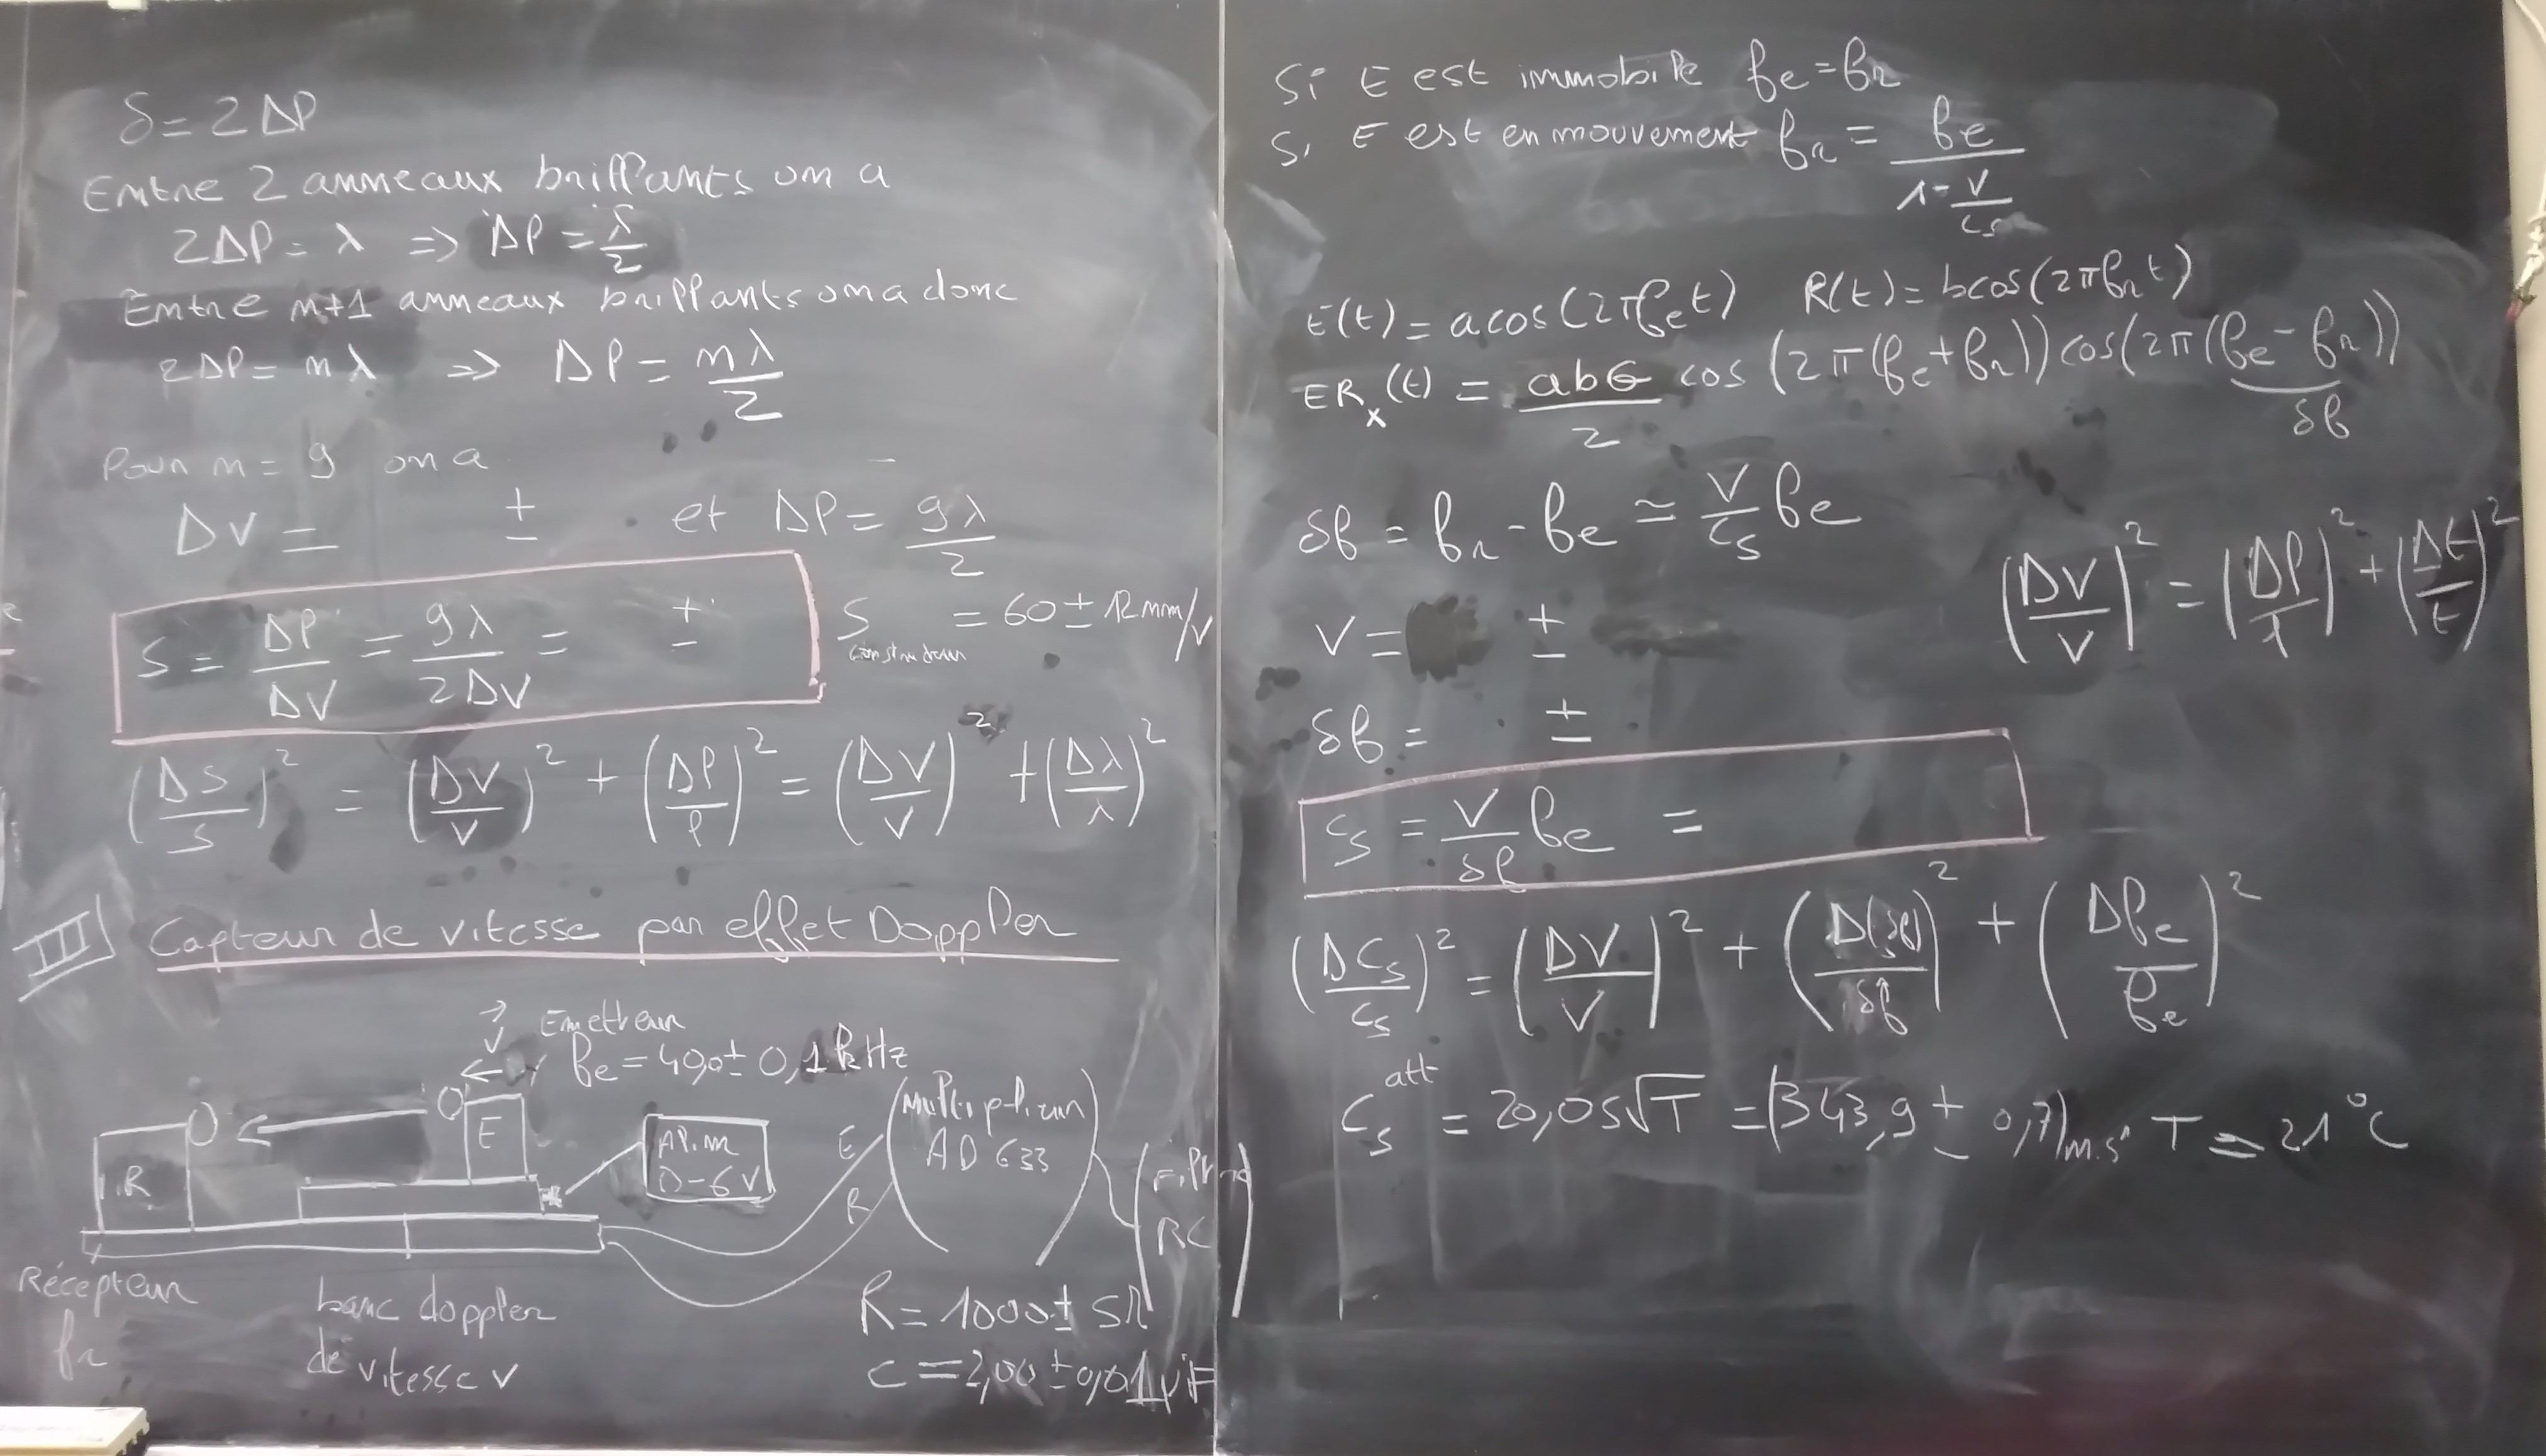 δ = 2Δl
Entre 2 anneaux brillants on a
2Δl = λ => Δl = λ/2
Entre m+1 anneaux brillants on a donc
2Δl = mλ => Δl = mλ/2
Pour m = 9 on a
ΔV = ± et Δl = 9λ/2
S = Δl/ΔV = 9λ/2ΔV = ±
S constructeur = 60 ± 12 nm/V
(ΔS/S)² = (ΔV/V)² + (Δl/l)² = (ΔV/V)² + (Δλ/λ)²
III) Capteur de vitesse par effet Doppler
v⃗
Emetteur
fe = 40,0 ± 0,1 kHz
R
E
Alim
0-6V
E
R
Multiplieur
AD 633
Filtre
RC
Récepteur
fr
banc doppler
de vitesse v
R = 1000 ± 5Ω
C = 2,00 ± 0,01 µF
Si E est immobile fe = fr
Si E est en mouvement fr = fe/(1 - v/cs)
E(t) = a cos(2πfet) R(t) = b cos(2πfrt)
ERx(t) = abG/2 cos(2π(fe+fr)) cos(2π(fe-fr))
δf
δf = fr - fe ≃ v/cs fe
v = ±
(Δv/v)² = (Δl/l)² + (Δt/t)²
δf = ±
cs = v/δf fe =
(Δcs/cs)² = (Δv/v)² + (Δ(δf)/δf)² + (Δfe/fe)²
cs att = 20,05√T = (343,9 ± 0,7) m.s⁻¹ T = 21°C